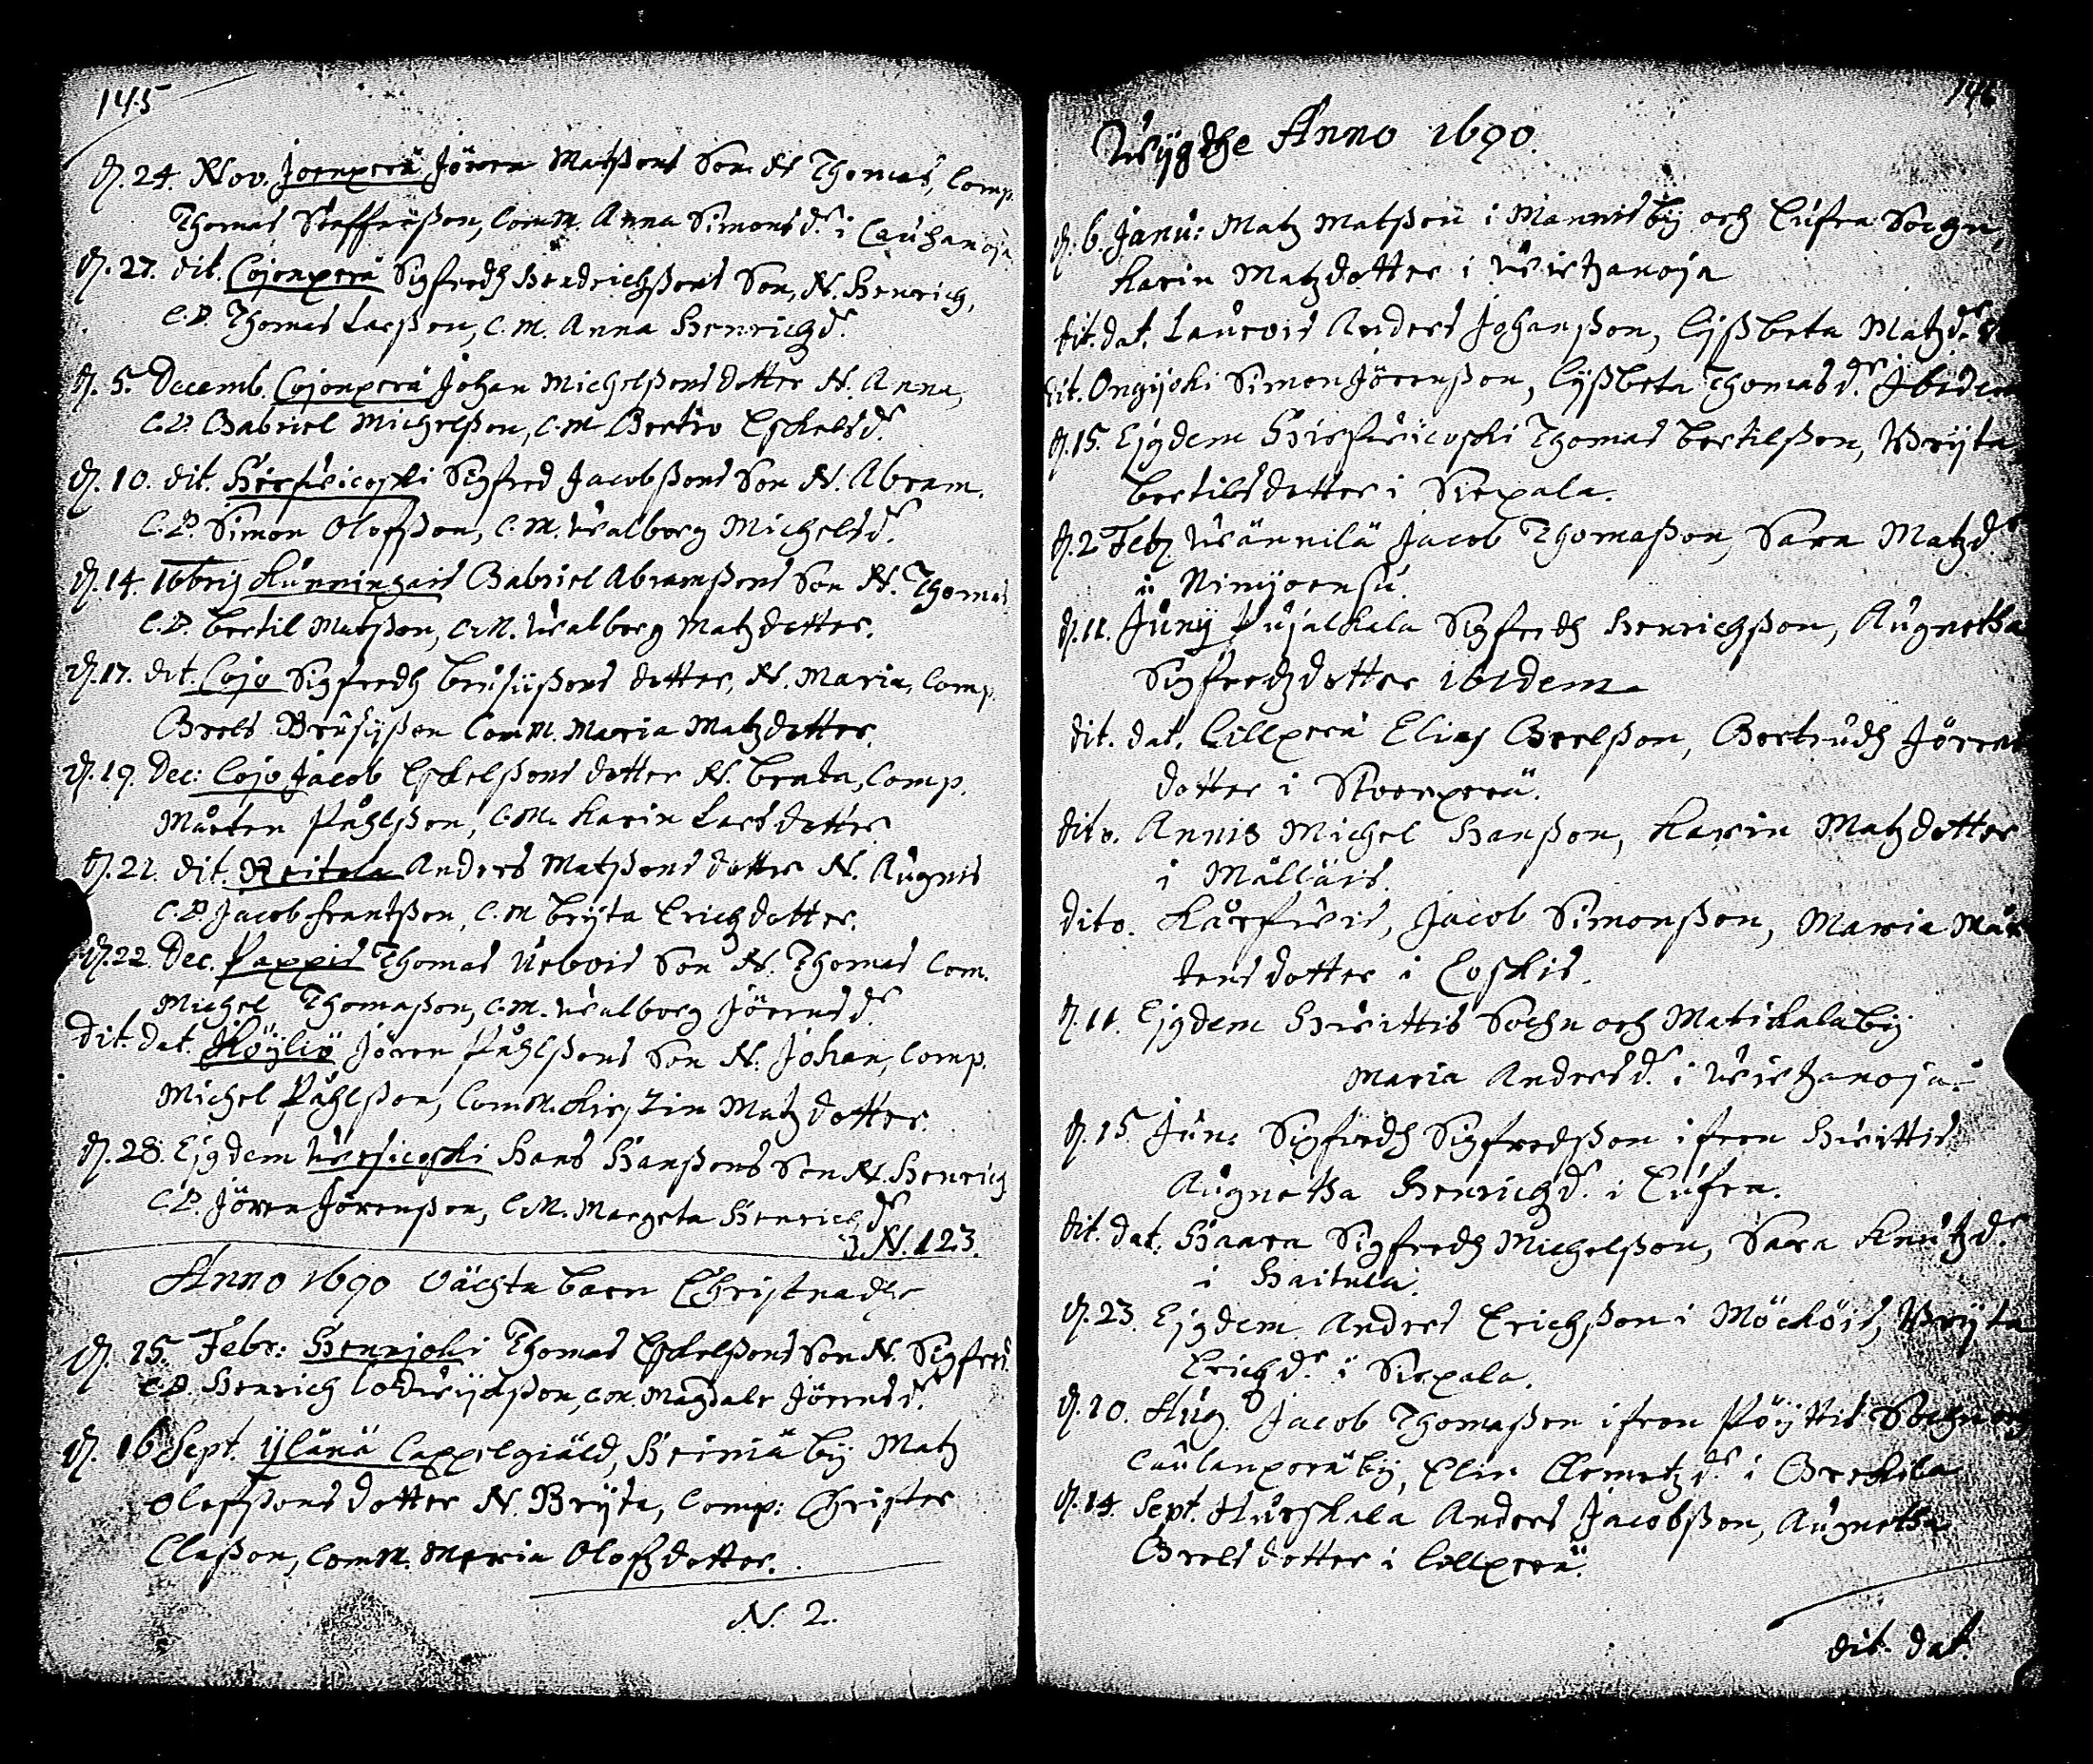 145
D. 24. Nov. Joenperä Jören Matßons Son N Thomas, Comp.
Thomas Steffenßon, ComM. Anna Simonsdr i Cauhanoja
D. 27. dit. Cojonperä Sigfredh Hendrichßons Son, N. Henrich,
C.P. Thomas Larßon, C.M. Anna Henrichdr
D. 5. Decemb. Cojonperä Johan Michelßons dotter N. Anna,
C.P. Gabriel Michelßon, C.M Eskelsdr
D. 10. dit. Hirfwicoski Sigfred Jacobßons Son N. Abram.
C.P. Simon Olofßon, C.M. Walborg Michelsdr
D. 14. 10bris Kunningais Gabriel Abramßons Son N. Thomas
C.P. Bertil Matßon, C.M. Walborg Matzdotter.
D. 17. dit. Cojo Sigfredh Brusiußons dotter, N. Maria, Comp.
Grels Brusyßon ComM. Maria Matzdotter.
D. 19. Dec: Cojo Jacob Eskelßons dotter N. Beata, Comp.
Mårten Påhlßon, C.M. Karin Larsdotter
D. 21. dit. Reitola Anders Matßons dotter N. Augnis
C.P. Jacob Frantßon, C.M Bryta Erichzdotter.
D. 22. Dec. Pappis Thomas Son N. Thomas Com.
Michel Thomaßon, C.M. Walborg Jörensdr
dit. dat. Köyliö Jören Påhlßons Son N. Johan, Comp.
Michel Påhlßon, ComM. Kirstin Matzdotter.
D. 28. Ejusdem Wersicoski Hans Hanßons Son N. Henrich
C.P. Jören Jörenßon, C.M. Margeta Henrichdr
N. 123.
Anno 1690 Oächta barn Christnadhe
D. 25. Febr: Hennijoki Thomas Eskelßons Son N. Sigfred.
C.P. Henrich Lodwijchßon, Com. Magdale Jörensdr
D. 16 Sept. Ylänä Cappelgiäld, Heiniä bij Matz
Olofßons dotter N. Bryta, Comp: Christer
Claßon, ComM. Maria Olofzdotter.
N. 2.
146
Wygdhe Anno 1690.
D. 6. Janu: Matz Matßon i Mannis by och Eufra Sochn,
Karin Matzdotter i Wirtzanoja
dit. dat. Laurois Anders Johanßon, Lijßbeta Matzdr
dit. Ongijoki Simon Jörenßon, Lyßbeta Thomasdr Ibidem
D. 15. Ejusdem Hirfwicoski Thomas Bertilßon, Bryta
Bertilsdotter i Sirpala.
D. 2 Feb: Wännilä Jacob Thomaßon, Sara Matzdr
i Nimijoensu.
D. 11. Juny Pujalkala Sigfredh Henrichßon, Augnetha
Sigfredzdotter ibidem
dit. dat. Lillperä Elias Grelßon, Gertrudh Jörens
dotter i Storperä.
dito. Annis Michel Hanßon, Karin Matzdotter
i Mälläis.
dito. Karfwis, Jacob Simonßon, Maria Mår
tensdotter i Coskis.
D. 11. Ejusdem Hwittis Sochn och Matikalaby
Maria Andersdr i Wirtzanoja
D. 15 Jun: Sigfredh Sigfredßon ifrån Hwittis
Augnetha Henrichdr i Eufra.
dit. dat: Haara Sigfredh Michelßon, Sara Knutzdr
i Haitula.
D. 23. Ejusdem Anders Erichßon i Möcköis, Bryta
Erichdr i Sirpala.
D. 10. Aug. Jacob Thomaßon ifrån Pöyttis Sochn och
Caulanperäby, Elin Clemetzdr i Krekila
D. 14. Sept. Hurskala Anders Jacobßon, Augnetha
Grelsdotter i Lillperä.
dit. dat.